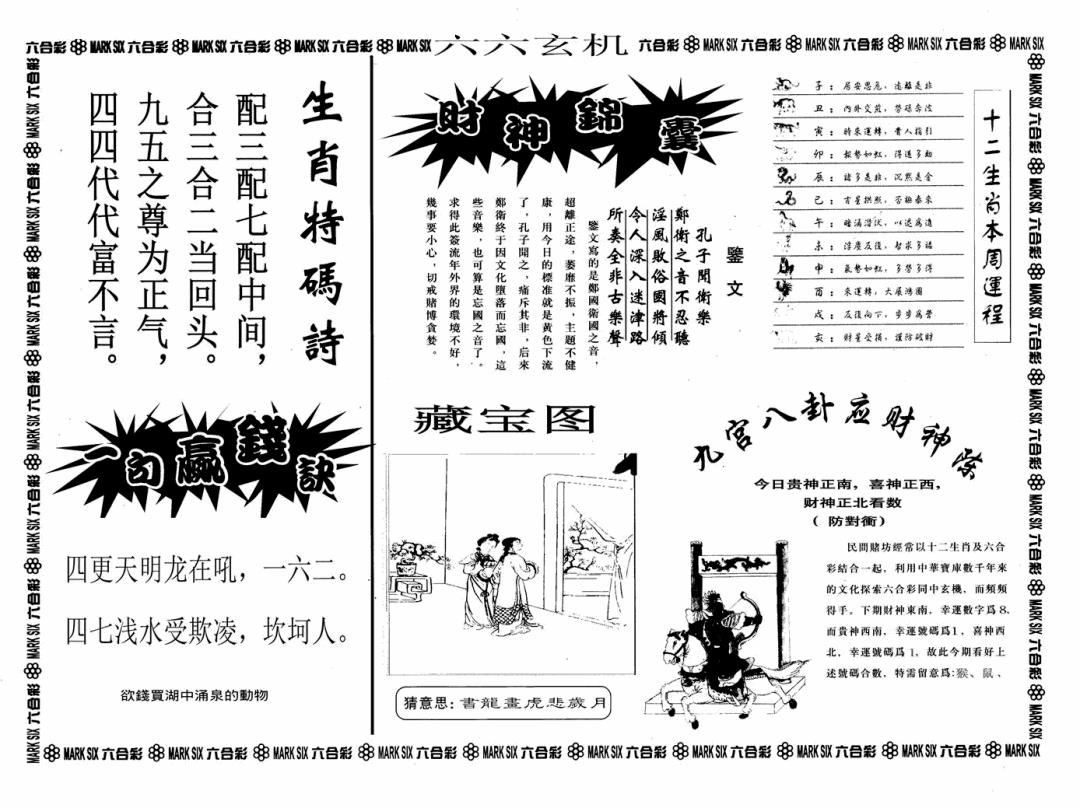 六六玄机
六合彩 MARK SIX 六合彩 MARK SIX 六合彩 MARK SIX 六合彩 MARK SIX
六合彩 MARK SIX 六合彩 MARK SIX 六合彩 MARK SIX 六合彩 MARK SIX
生肖特碼詩
配三配七配中间，
合三合二当回头。
九五之尊为正气，
四四代代富不言。
一句贏錢訣
四更天明龙在吼，一六二。
四七浅水受欺凌，坎坷人。
欲錢買湖中涌泉的動物
財神錦囊
鑒文
孔子聞衛樂
鄭衛之音不忍聽
淫風敗俗國將傾
令人深入迷津路
所奏全非古樂聲
鑒文寫的是鄭國衛國之音，
超離正途，萎靡不振，主題不健
康，用今日的標准就是黄色下流
了，孔子聞之，痛斥其非，后來
鄭衛終于因文化墮落而忘國，這
些音樂，也可算是忘國之音了。
求得此簽流年外界的環境不好，
幾事要小心，切戒賭博貪婪。
十二生肖本周運程
子：居安思危，遠離是非
丑：內外交煎，勞碌奔波
寅：時來運轉，貴人指引
卯：報勢如虹，得道多助
辰：諸多是非，沉默是金
午：暗涌潜伏，以退爲進
申：氣勢如虹，多勞多得
酉：來運轉，大展鴻圖
戌：反復向下，步步爲營
亥：財星受損，謹防破財
藏宝图
猜意思：書龍畫虎悲歲月
九宫八卦应财神
今日贵神正南，喜神正西，
财神正北看数
（防對衝）
民間賭坊經常以十二生肖及六合
彩結合一起，利用中華寶庫數千年來
的文化探索六合彩同中玄機，而頻頻
得手。下期財神東南，幸運數字爲8，
而貴神西南，幸運號碼爲1，喜神西
北，幸運號碼爲1，故此今期看好上
述號碼合數，特需留意爲：猴、鼠、
MARK SIX 六合彩 MARK SIX 六合彩 MARK SIX 六合彩 MARK SIX 六合彩 MARK SIX 六合彩 MARK SIX 六合彩 MARK SIX 六合彩 MARK SIX 六合彩 MARK SIX 六合彩 MARK SIX